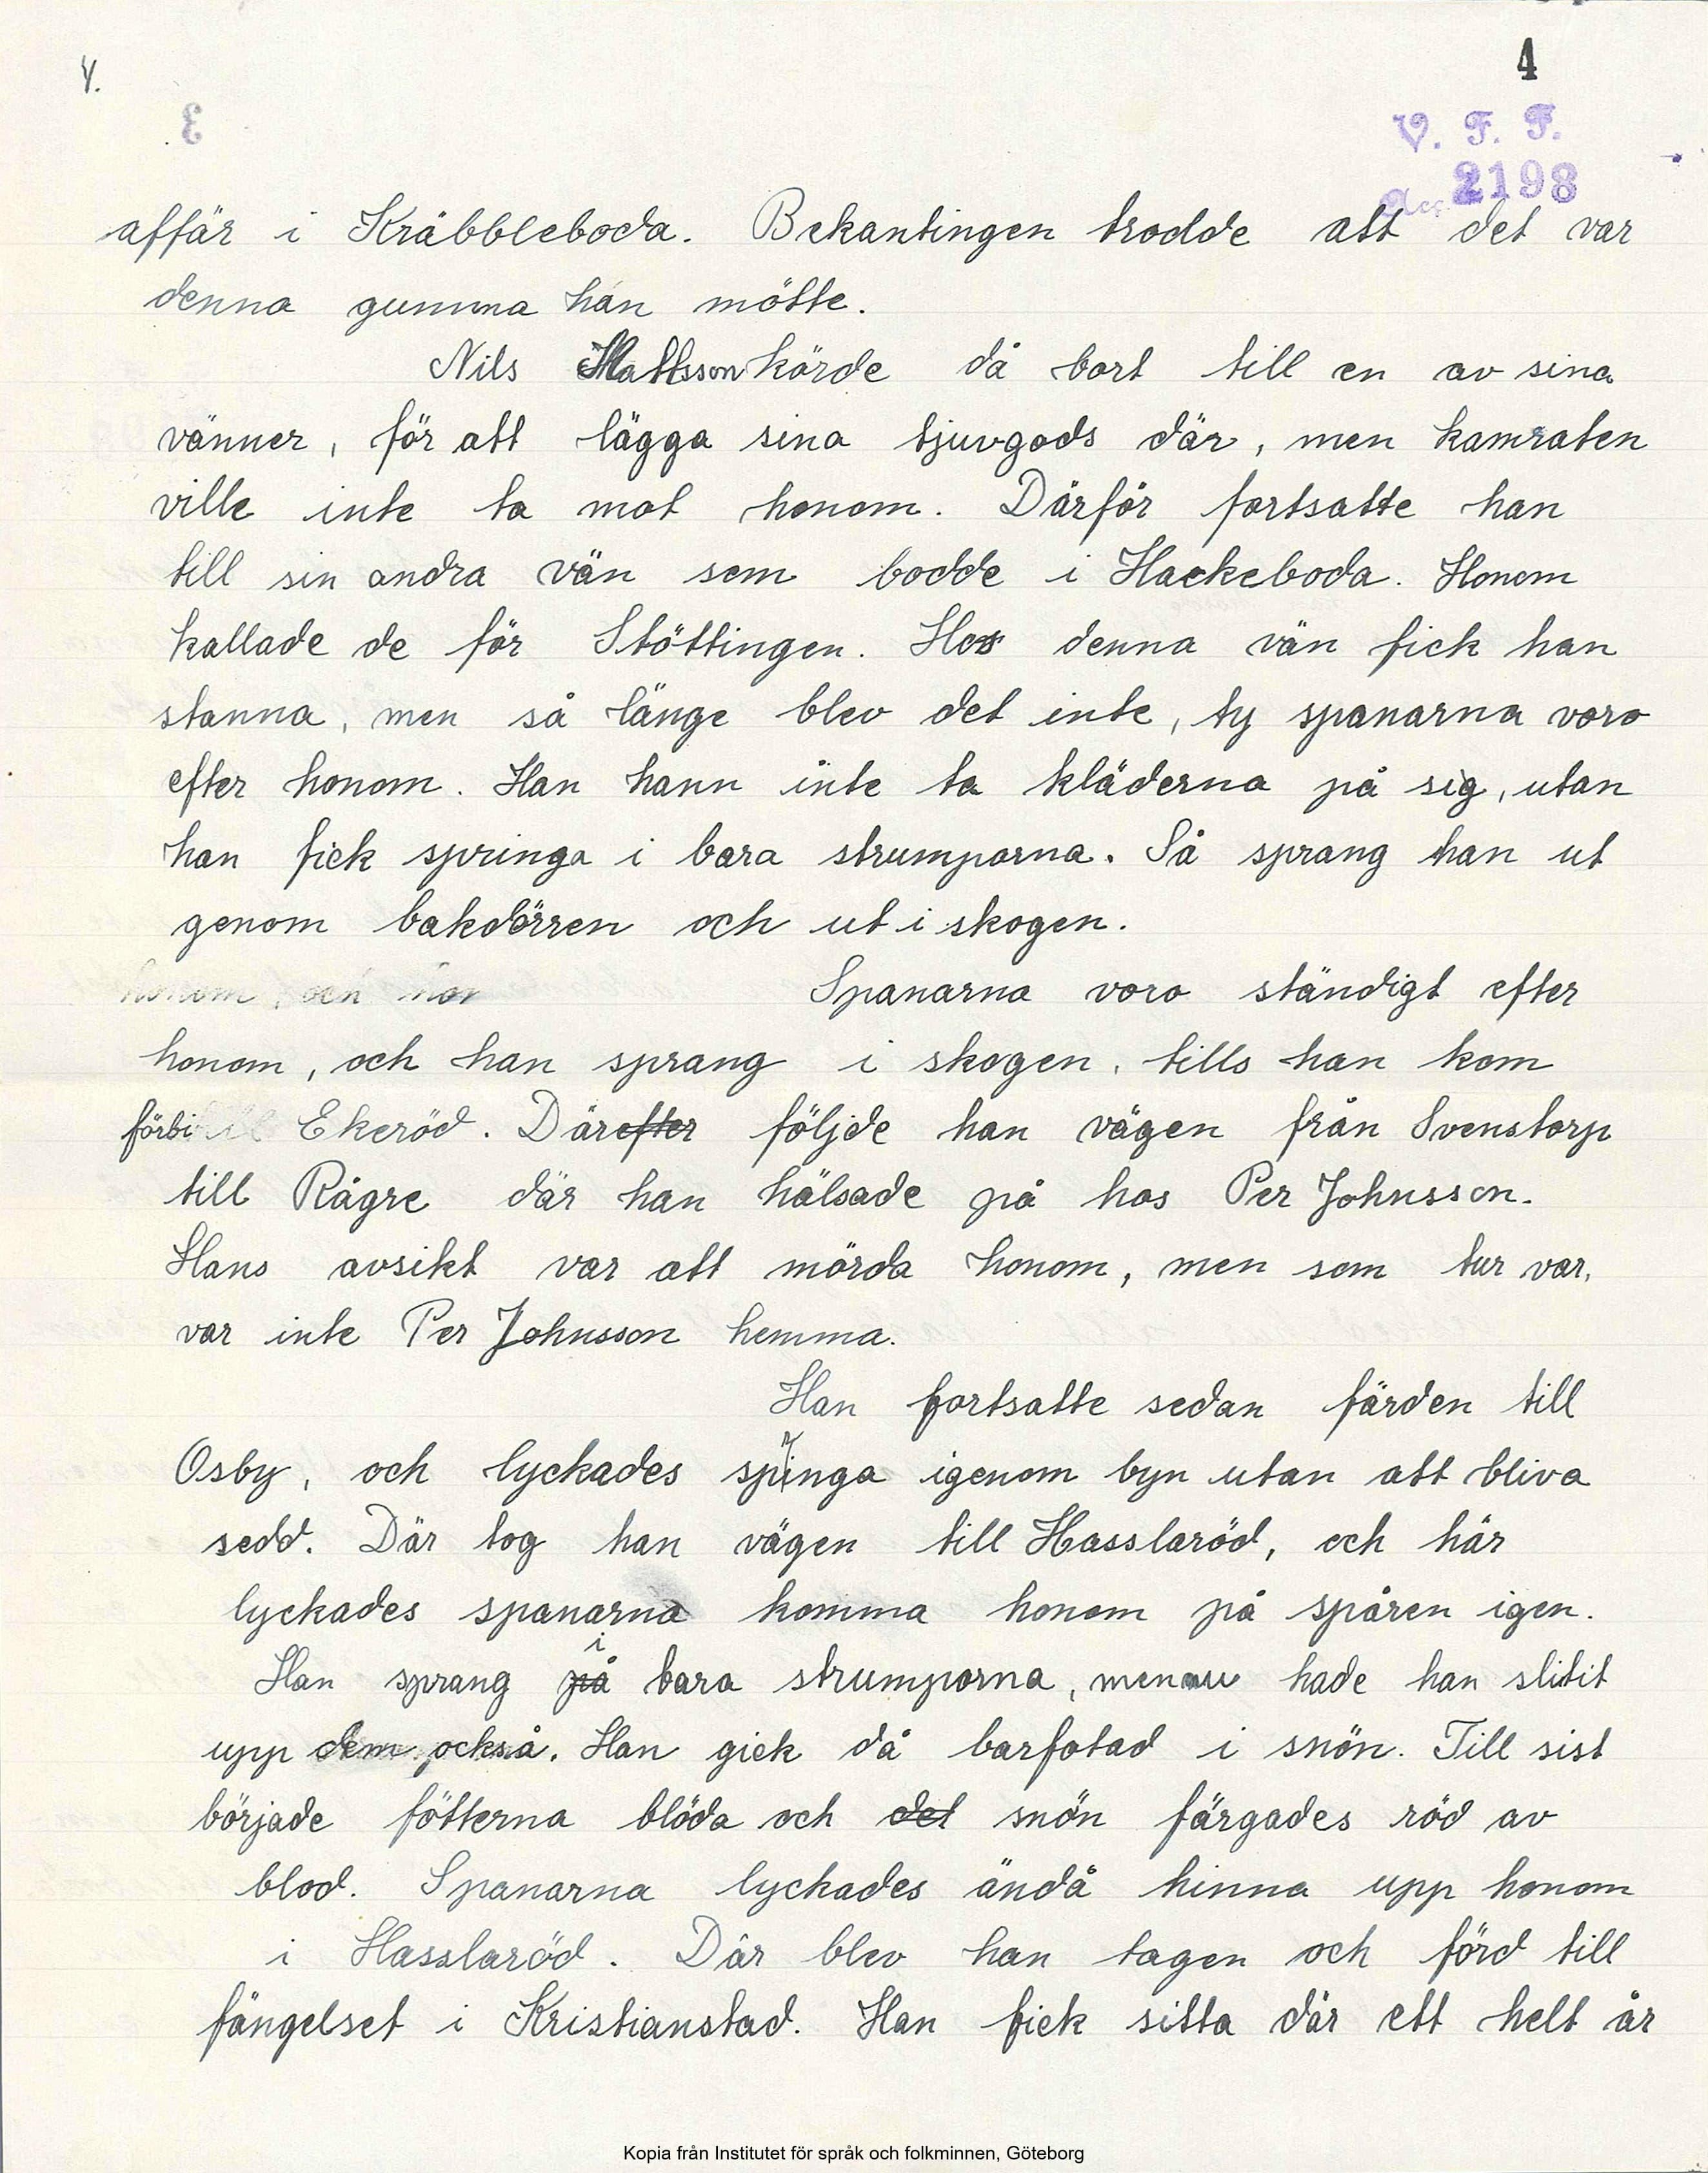 4.
4
3
V. F. F.
Acc. 2198
affär i Kräbbleboda. Bekantingen trodde att det var
denna gumma han mötte.
Nils Mattsson körde då bort till en av sina
vänner, för att lägga sina tjuvgods där, men kamraten
ville inte ta mot honom. Därför fortsatte han
till sin andra vän som bodde i Hackeboda. Honom
kallade de för Stöttingen. Hos denna vän fick han
stanna, men så länge blev det inte, ty spanarna voro
efter honom. Han hann inte ta kläderna på sig, utan
han fick springa i bara strumporna. Så sprang han ut
genom bakdörren och ut i skogen.
honom, och han Spanarna voro ständigt efter
honom, och han sprang i skogen, tills han kom
förbi till Ekeröd. Därefter följde han vägen från Svenstorp
till Rågre där han hälsade på hos Per Johnsson.
Hans avsikt var att mörda honom, men som tur var,
var inte Per Johnsson hemma.
Han fortsatte sedan färden till
Osby, och lyckades springa igenom byn utan att bliva
sedd. Där tog han vägen till Hasslaröd, och här
lyckades spanarna komma honom på spåren igen.
i
Han sprang på bara strumporna, men nu hade han slitit
upp dem också. Han gick då barfotad i snön. Till sist
började fötterna blöda och det snön färgades röd av
blod. Spanarna lyckades ändå hinna upp honom
i Hasslaröd. Där blev han tagen och förd till
fängelset i Kristianstad. Han fick sitta där ett helt år
Kopia från Institutet för språk och folkminnen, Göteborg